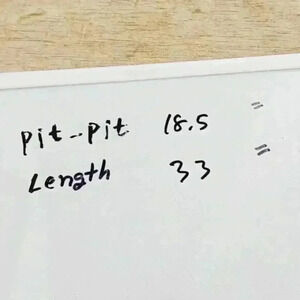 pit--pit 18.5 "
Length 33 "